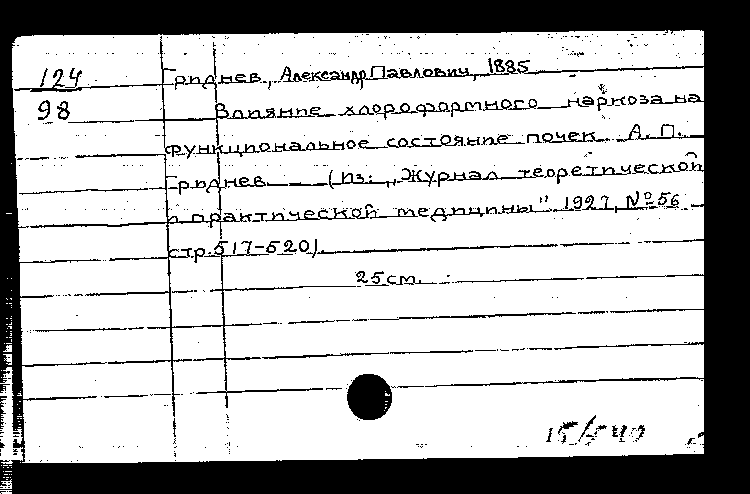 124
98
Гриднев, Александр Павлович, 1885
Влияние хлороформного наркоза на
функциональное состояние почек. А. П.
Гриднев (Из: „Журнал теоретической
и практической медицины" 1927, № 56
стр. 517-520).
25 см.
15/540